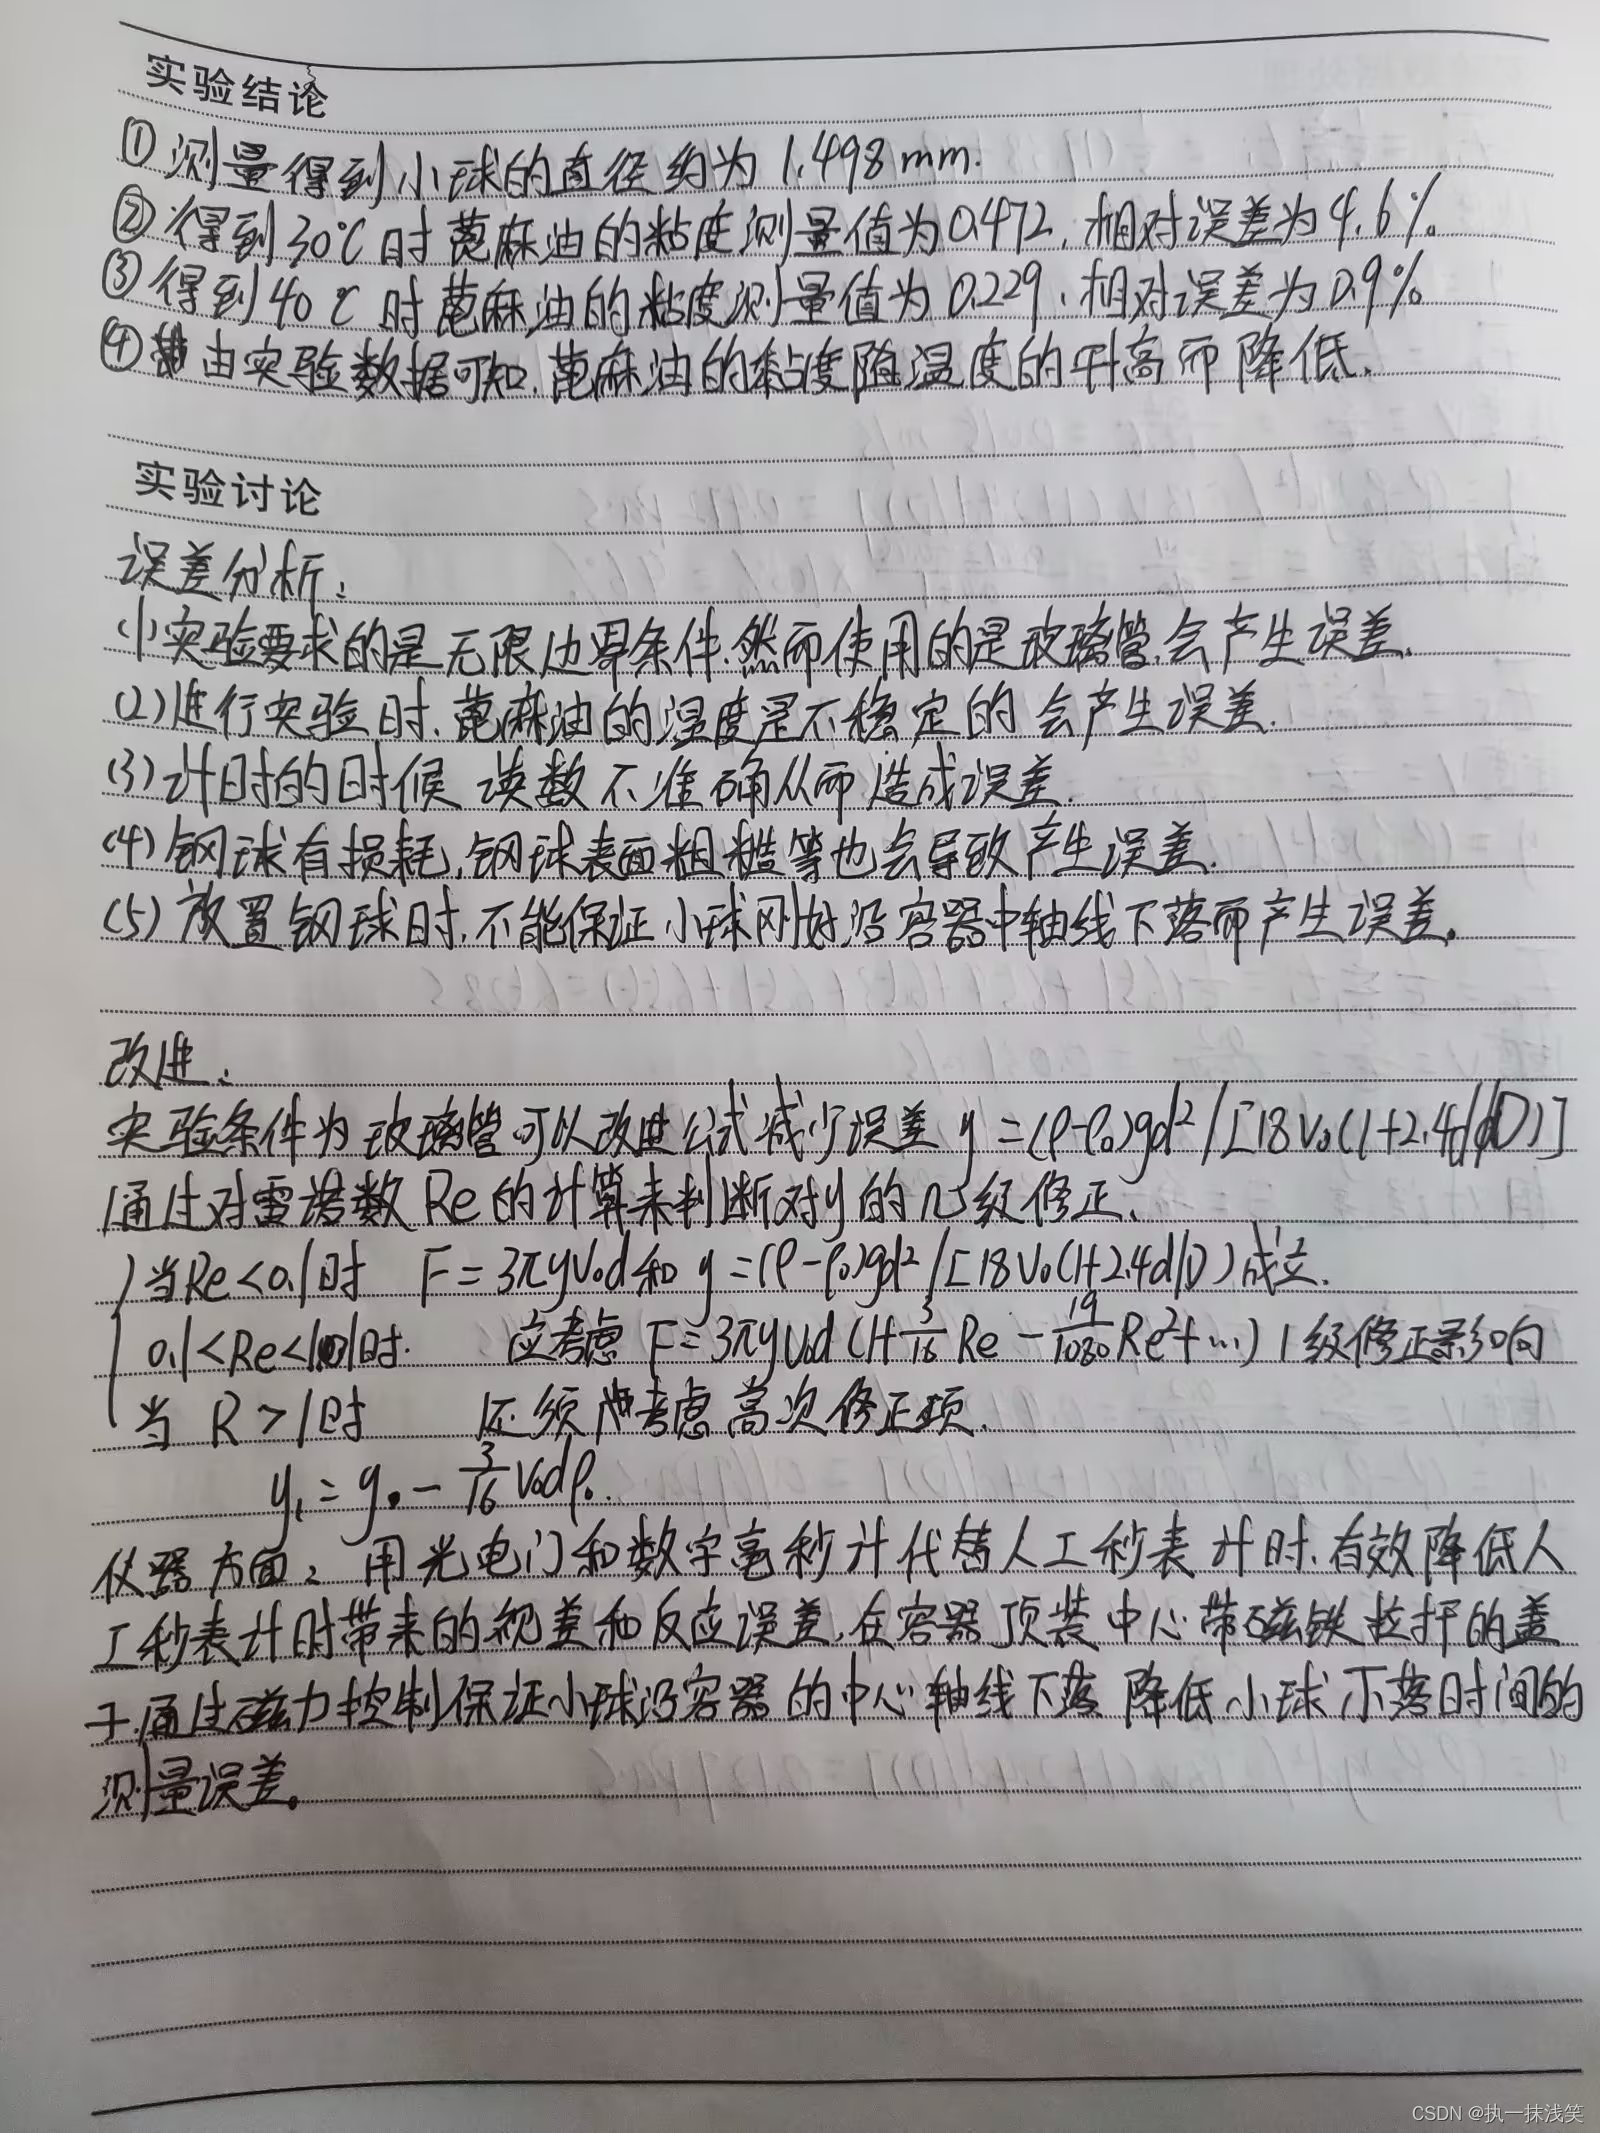 实验结论
①测量得到小球的直径约为1.498mm.
②得到30℃时蓖麻油的粘度测量值为0.472,相对误差为4.6%.
③得到40℃时蓖麻油的粘度测量值为0.229,相对误差为0.9%
④由实验数据可知,蓖麻油的黏度随温度的升高而降低.
实验讨论
误差分析:
(1)实验要求的是无限边界条件,然而使用的是玻璃管,会产生误差.
(2)进行实验时,蓖麻油的温度是不稳定的 会产生误差.
(3)计时的时候 读数不准确从而造成误差.
(4)钢球有损耗,钢球表面粗糙等也会导致产生误差.
(5)放置钢球时,不能保证小球刚好沿容器中轴线下落而产生误差.
改进:
实验条件为玻璃管可以改进公式减少误差 y=(ρ-ρ₀)gd²/[18V₀(1+2.4d/D)]
通过对雷诺数Re的计算来判断对y的几级修正.
当Re<0.1时 F=3πyV₀d和y=(ρ-ρ₀)gd²/[18V₀(1+2.4d/D)成立.
0.1<Re<1时. 应考虑F=3πyV₀d(1+3/16Re-19/1080Re²+…)1级修正影响
当R>1时 还须考虑高次修正项.
y₁=y₀-3/16V₀dρ₀.
仪器方面:用光电门和数字毫秒计代替人工秒表计时,有效降低人
工秒表计时带来的视差和反应误差,在容器顶装中心带磁铁拉杆的盖
子,通过磁力控制保证小球沿容器的中心轴线下落 降低小球下落时间的
测量误差。
CSDN @执一抹浅笑